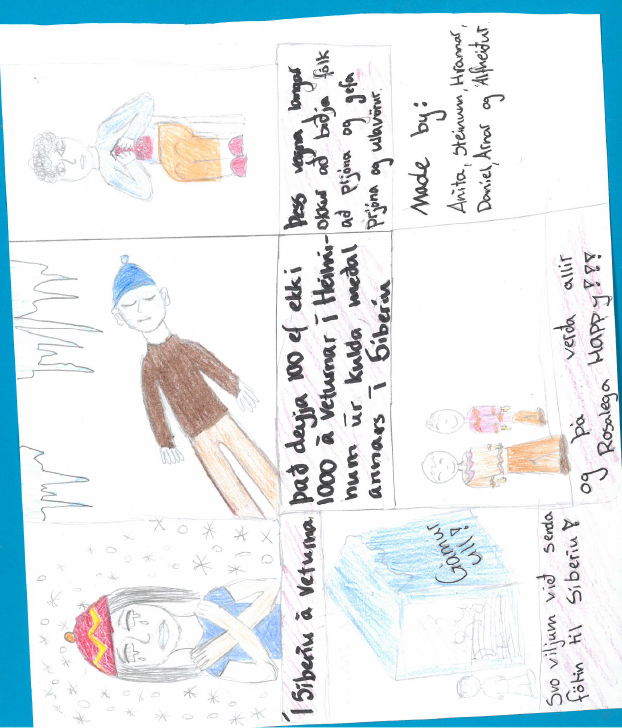 Í Síberíu á veturna
það deyja 100 ef ekki
1000 á veturnar í Heimi-
num úr kulda, meðal
annars í Síberíu
Þess vegna langar
okkur að biðja fólk
að prjóna og gefa
prjóna og ullavörur.
Gámur
ull!
Svo viljum við senda
fötin til Síberíu!
og þá verða allir
Rosalega HAPPY!!!
Made by:
Anita, Steinunn, Hramar,
Daníel, Arnar og Álfheiður